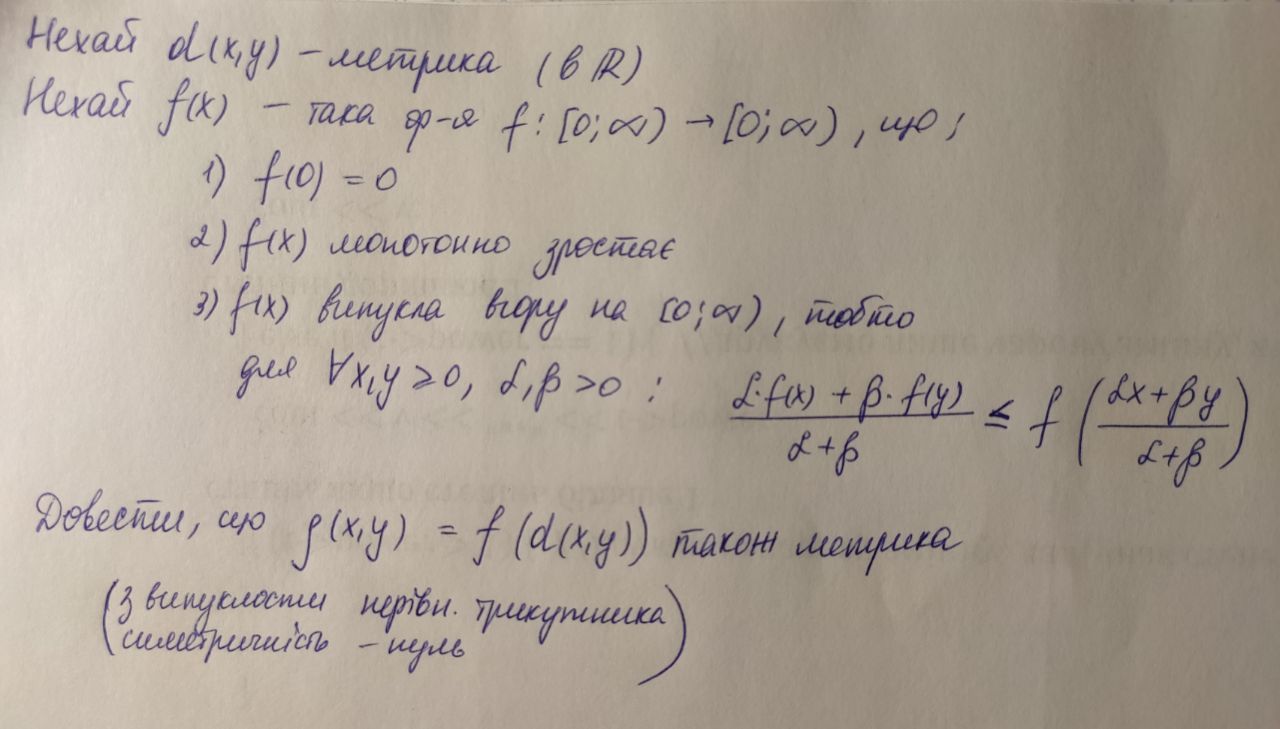 Нехай d(x,y) – метрика (в ℝ)
Нехай f(x) – така ф-я f: [0;∞) → [0;∞), що;
1) f(0) = 0
2) f(x) монотонно зростає
3) f(x) випукла вгору на [0;∞), тобто
для ∀x,y ⩾ 0, α,β > 0 : (α·f(x) + β·f(y))/(α+β) ≤ f((αx+βy)/(α+β))
Довести, що ρ(x,y) = f(d(x,y)) також метрика
(З випуклости нерівн. трикутника
симетричність – нуль)